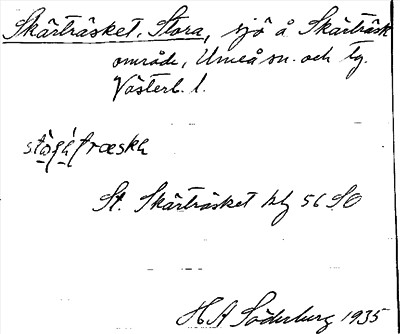 Skärträsket, Stora, sjö å Skärträsk
område, Umeå sn. och tg.
Västerb. l.
St. Skärträsket blg 56 SO
H A Söderberg 1935